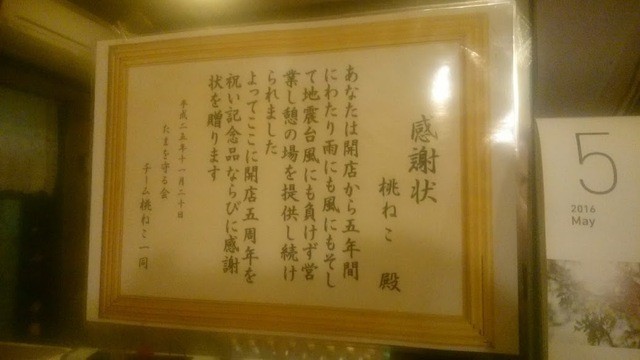 感謝状
桃ねこ 殿
あなたは開店から五年間
にわたり雨にも風にもそし
て地震台風にも負けず営
業し憩の場を提供し続け
られました
よってここに開店五周年を
祝い記念品ならびに感謝
状を贈ります
平成二五年十一月二十日
たまを守る会
チーム桃ねこ一同
5
2016
May